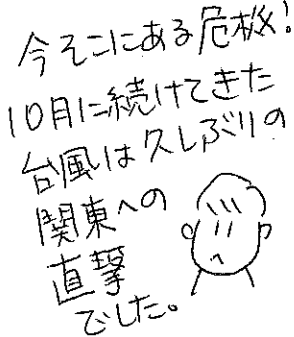 今そこにある危機!
10月に続けてきた
台風は久しぶりの
関東への
直撃
でした。